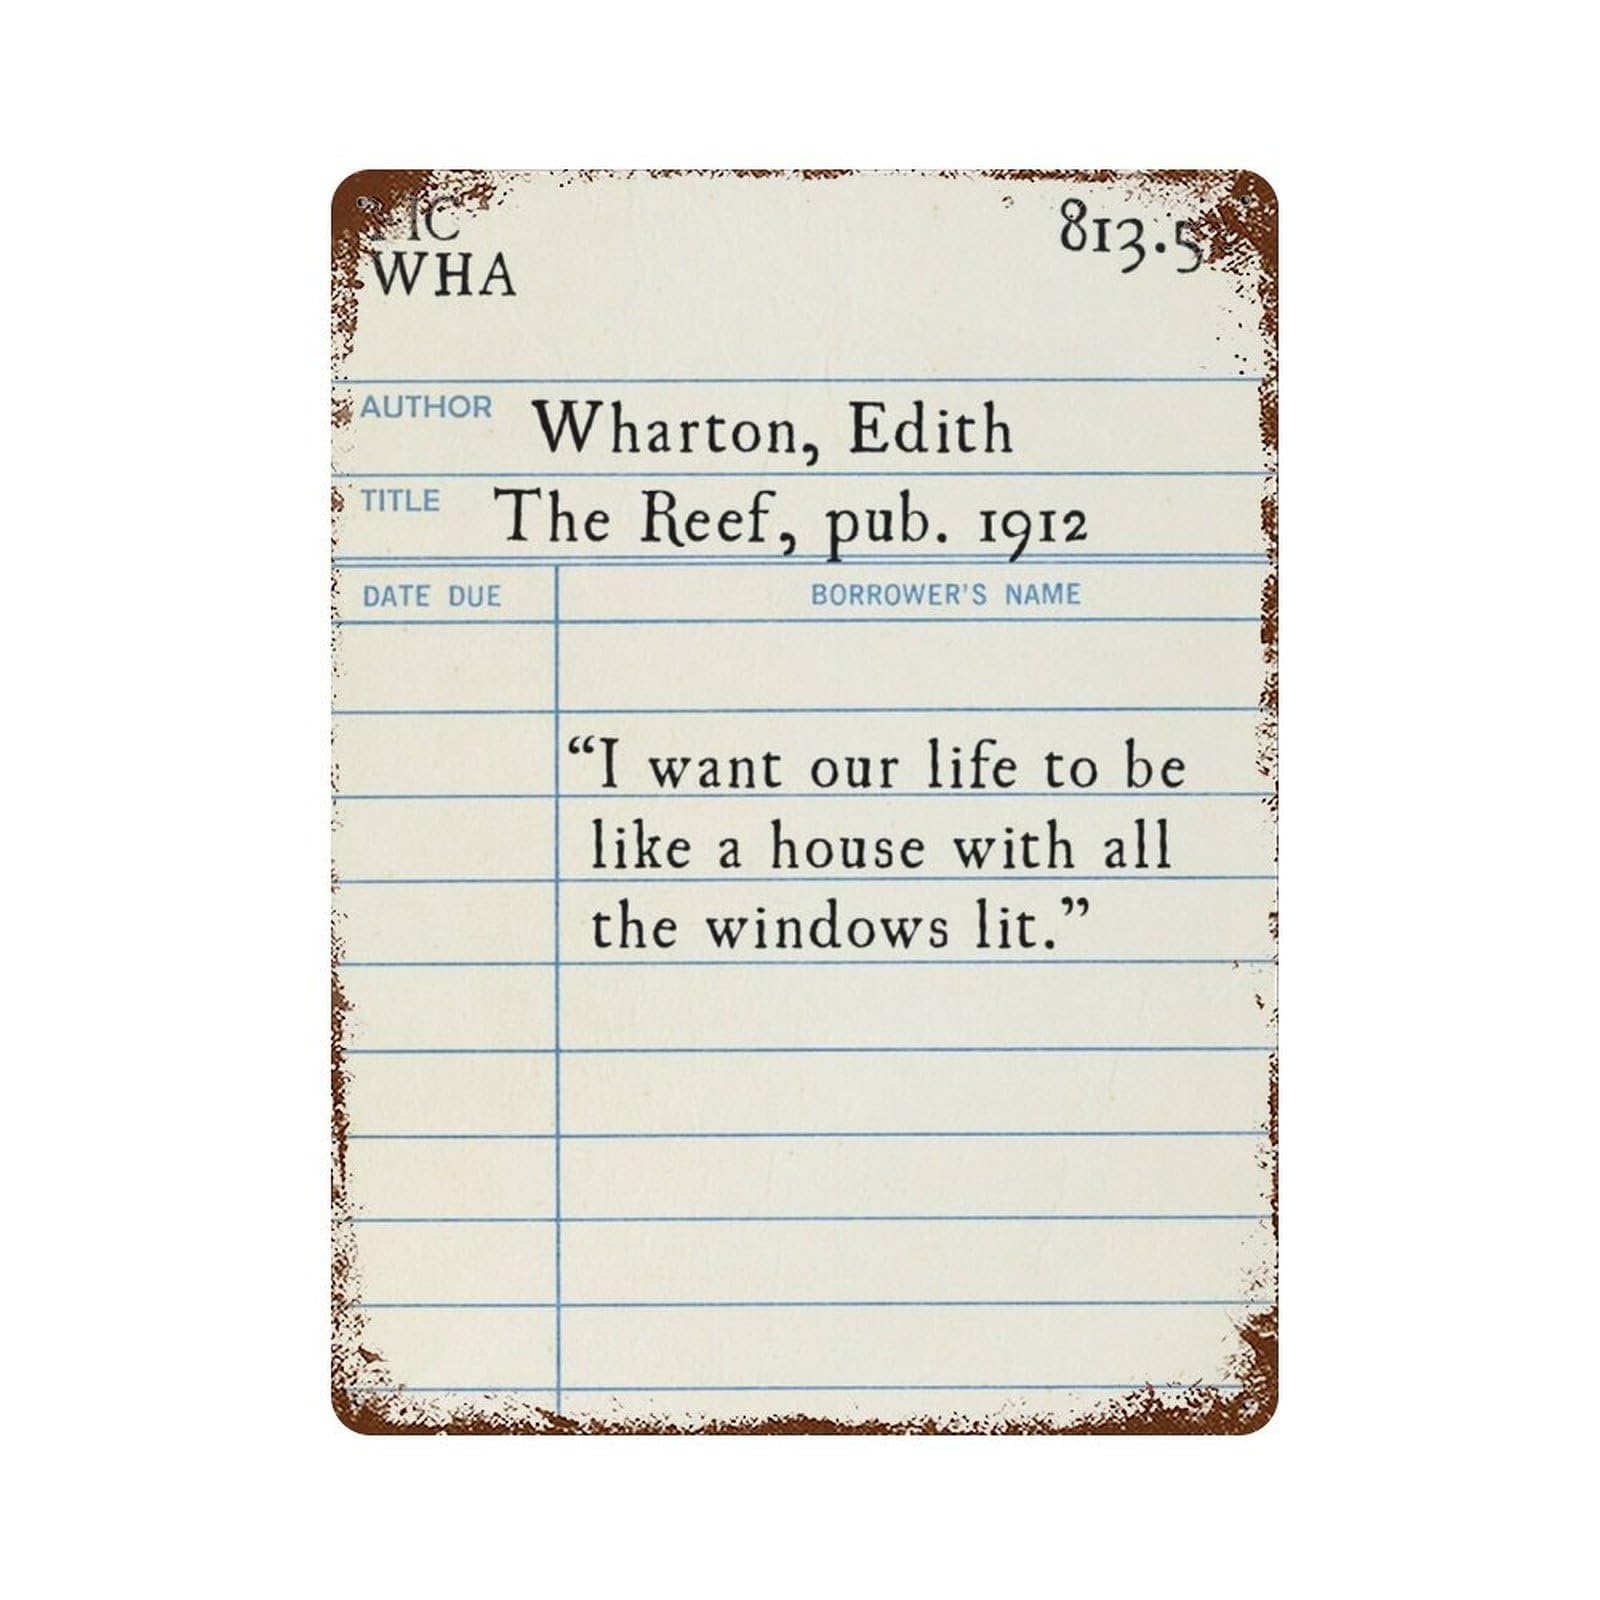 WHA
813.5
AUTHOR Wharton, Edith
TITLE The Reef, pub. 1912
DATE DUE BORROWER'S NAME
“I want our life to be
like a house with all
the windows lit.”